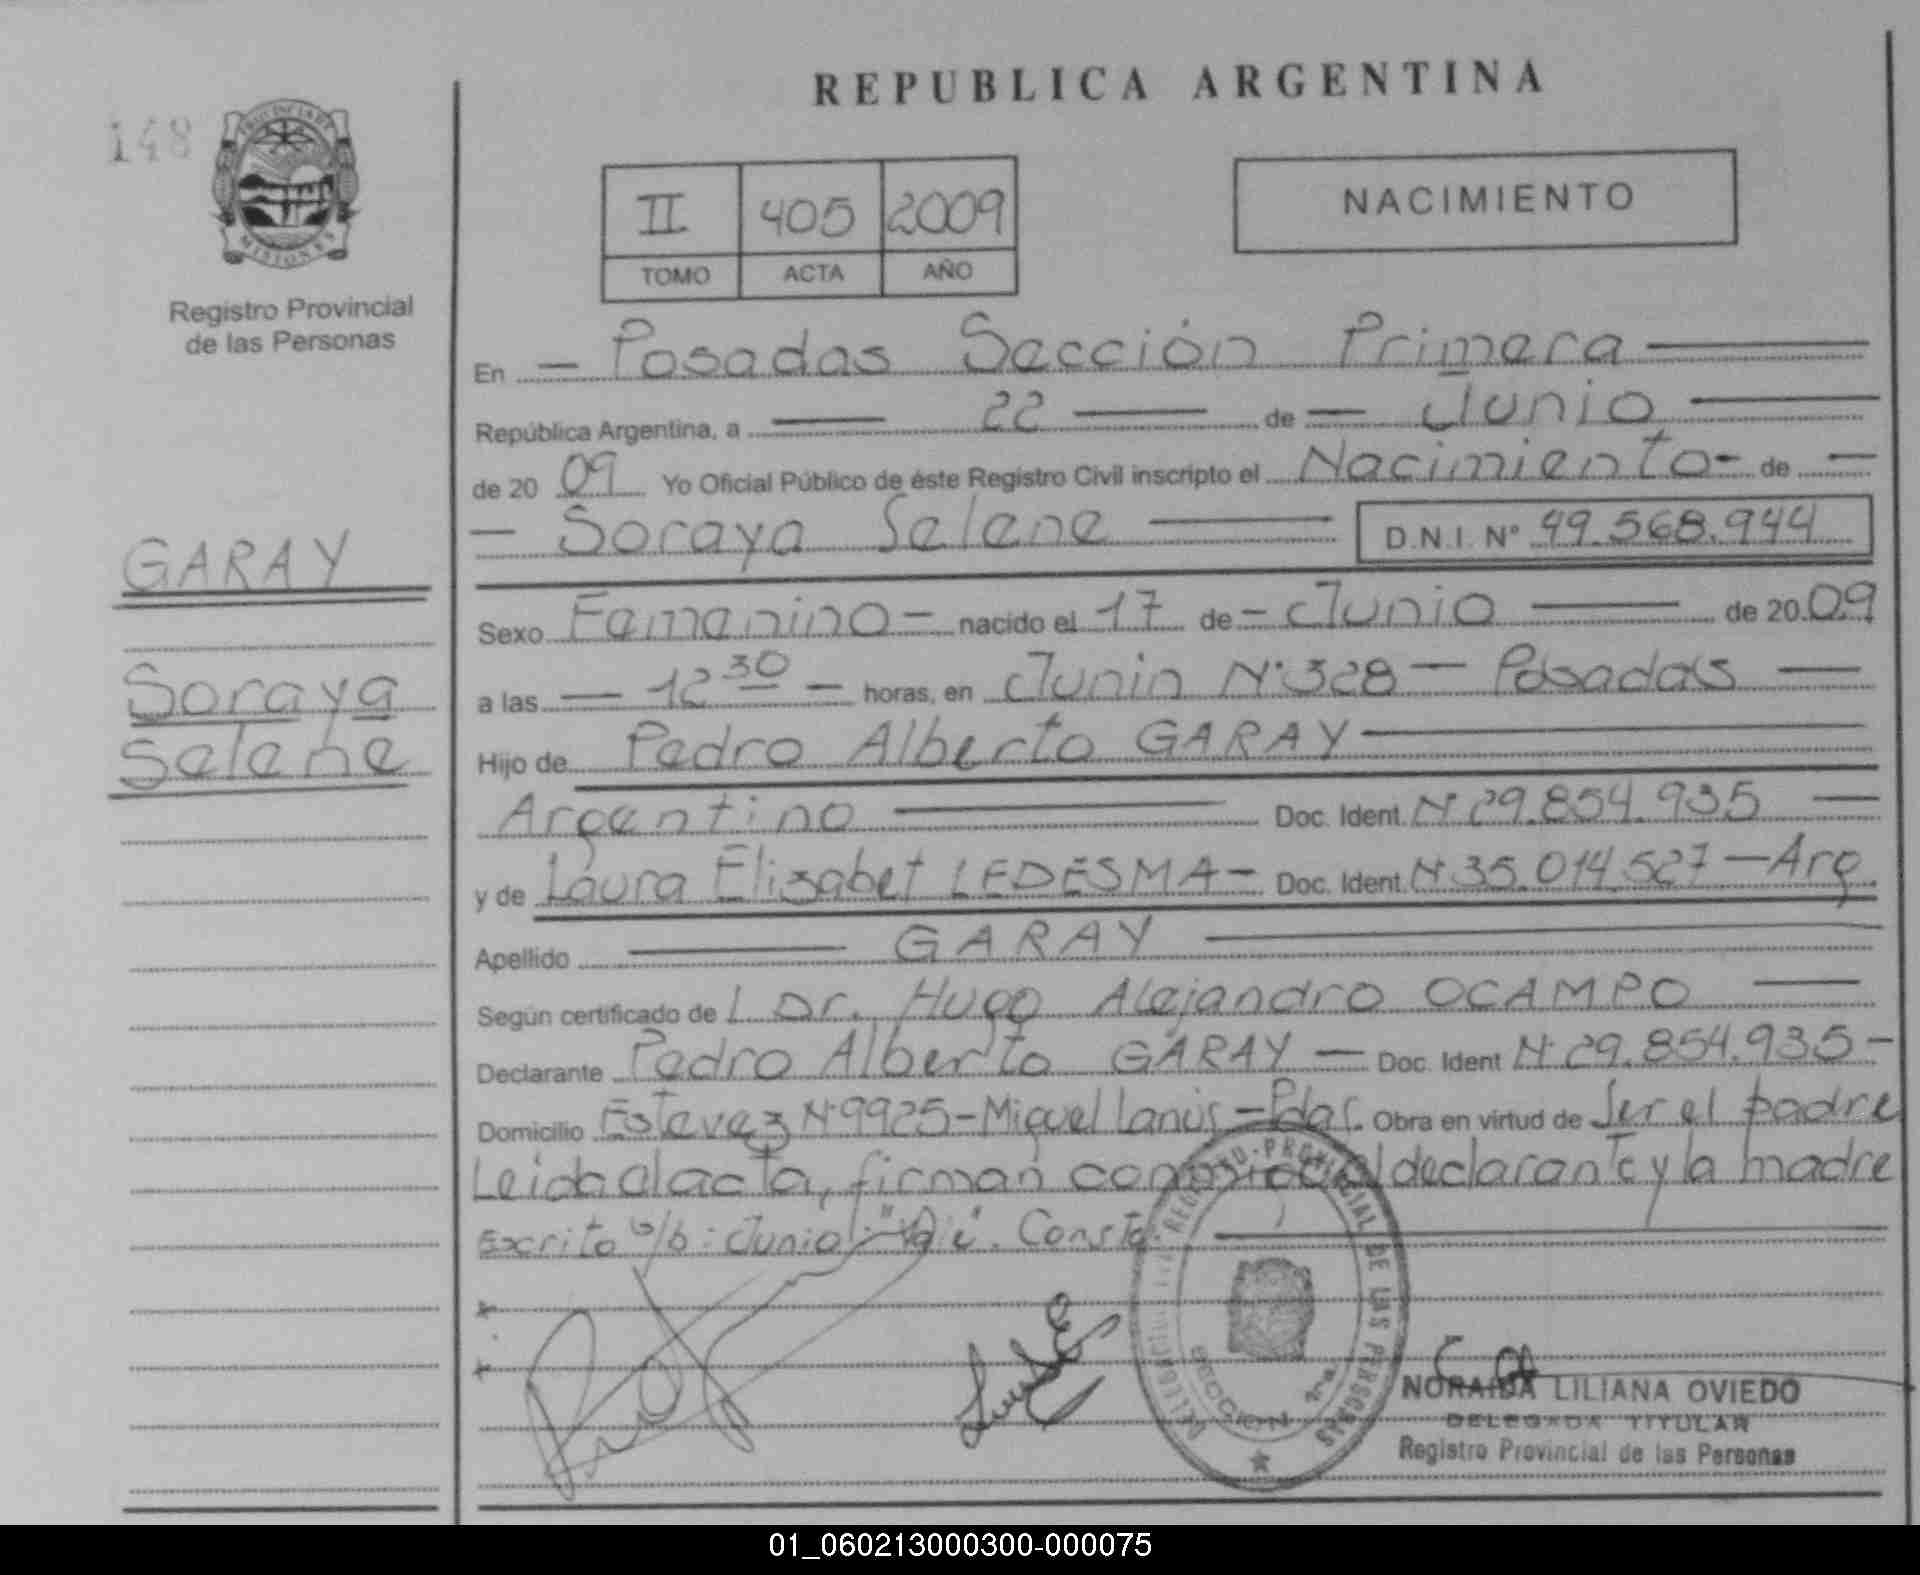 REPUBLICA ARGENTINA
148
PROVINCIA DE
MISIONES
Registro Provincial
de las Personas
II 405 2009
TOMO ACTA AÑO
NACIMIENTO
En — Posadas Sección Primera —
República Argentina, a — 22 — de — Junio —
de 20 09 Yo Oficial Público de éste Registro Civil inscripto el Nacimiento - de —
— Soraya Selene — D.N.I. Nº 49.568.944
GARAY
Soraya
Selene
Sexo Femenino — nacido el 17 de — Junio — de 20 09
a las — 12 30 — horas, en Junin Nº 328 — Posadas —
Hijo de Pedro Alberto GARAY —
Argentino — Doc. Ident. Nº 29.854.935 —
y de Laura Elizabet LEDESMA — Doc. Ident. Nº 35.014.527 — Arg
Apellido — GARAY —
Según certificado de l Dr. Hugo Alejandro OCAMPO —
Declarante Pedro Alberto GARAY — Doc. Ident Nº 29.854.935 -
Domicilio Estevez Nº 9925 - Miguel Lanús - Pdas. Obra en virtud de Ser el padre
Leida el acta, firman conmigo el declarante y la madre
Escrito s/b: Junio: "Vale". Consta.
REGISTRO PROVINCIAL DE LAS PERSONAS
SECCION 1ra.
NORAIDA LILIANA OVIEDO
DELEGADA TITULAR
Registro Provincial de las Personas
01_060213000300-000075